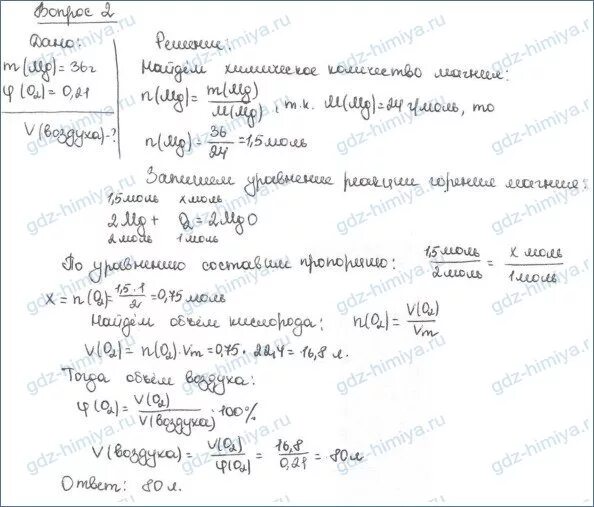 Вопрос 2
Дано:
m(Mg)=36г
φ(O₂)=0,21
V(воздуха)-?
Решение:
Найдём химическое количество магния:
n(Mg)=m(Mg)/M(Mg), т.к. M(Mg)=24 г/моль, то
n(Mg)=36/24=1,5 моль
Запишем уравнение реакции горения магния:
1,5моль x моль
2Mg + O₂ = 2MgO
2 моль 1 моль
По уравнению составим пропорцию: 1,5 моль/2 моль = x моль/1 моль
x = n(O₂)=1,5·1/2=0,75 моль
Найдём объём кислорода: n(O₂)=V(O₂)/Vm
V(O₂)=n(O₂)·Vm=0,75·22,4=16,8 л.
Тогда объём воздуха:
φ(O₂)=V(O₂)/V(воздуха)·100%
V(воздуха)=V(O₂)/φ(O₂)=16,8/0,21=80л
Ответ: 80 л.
gdz-himiya.ru